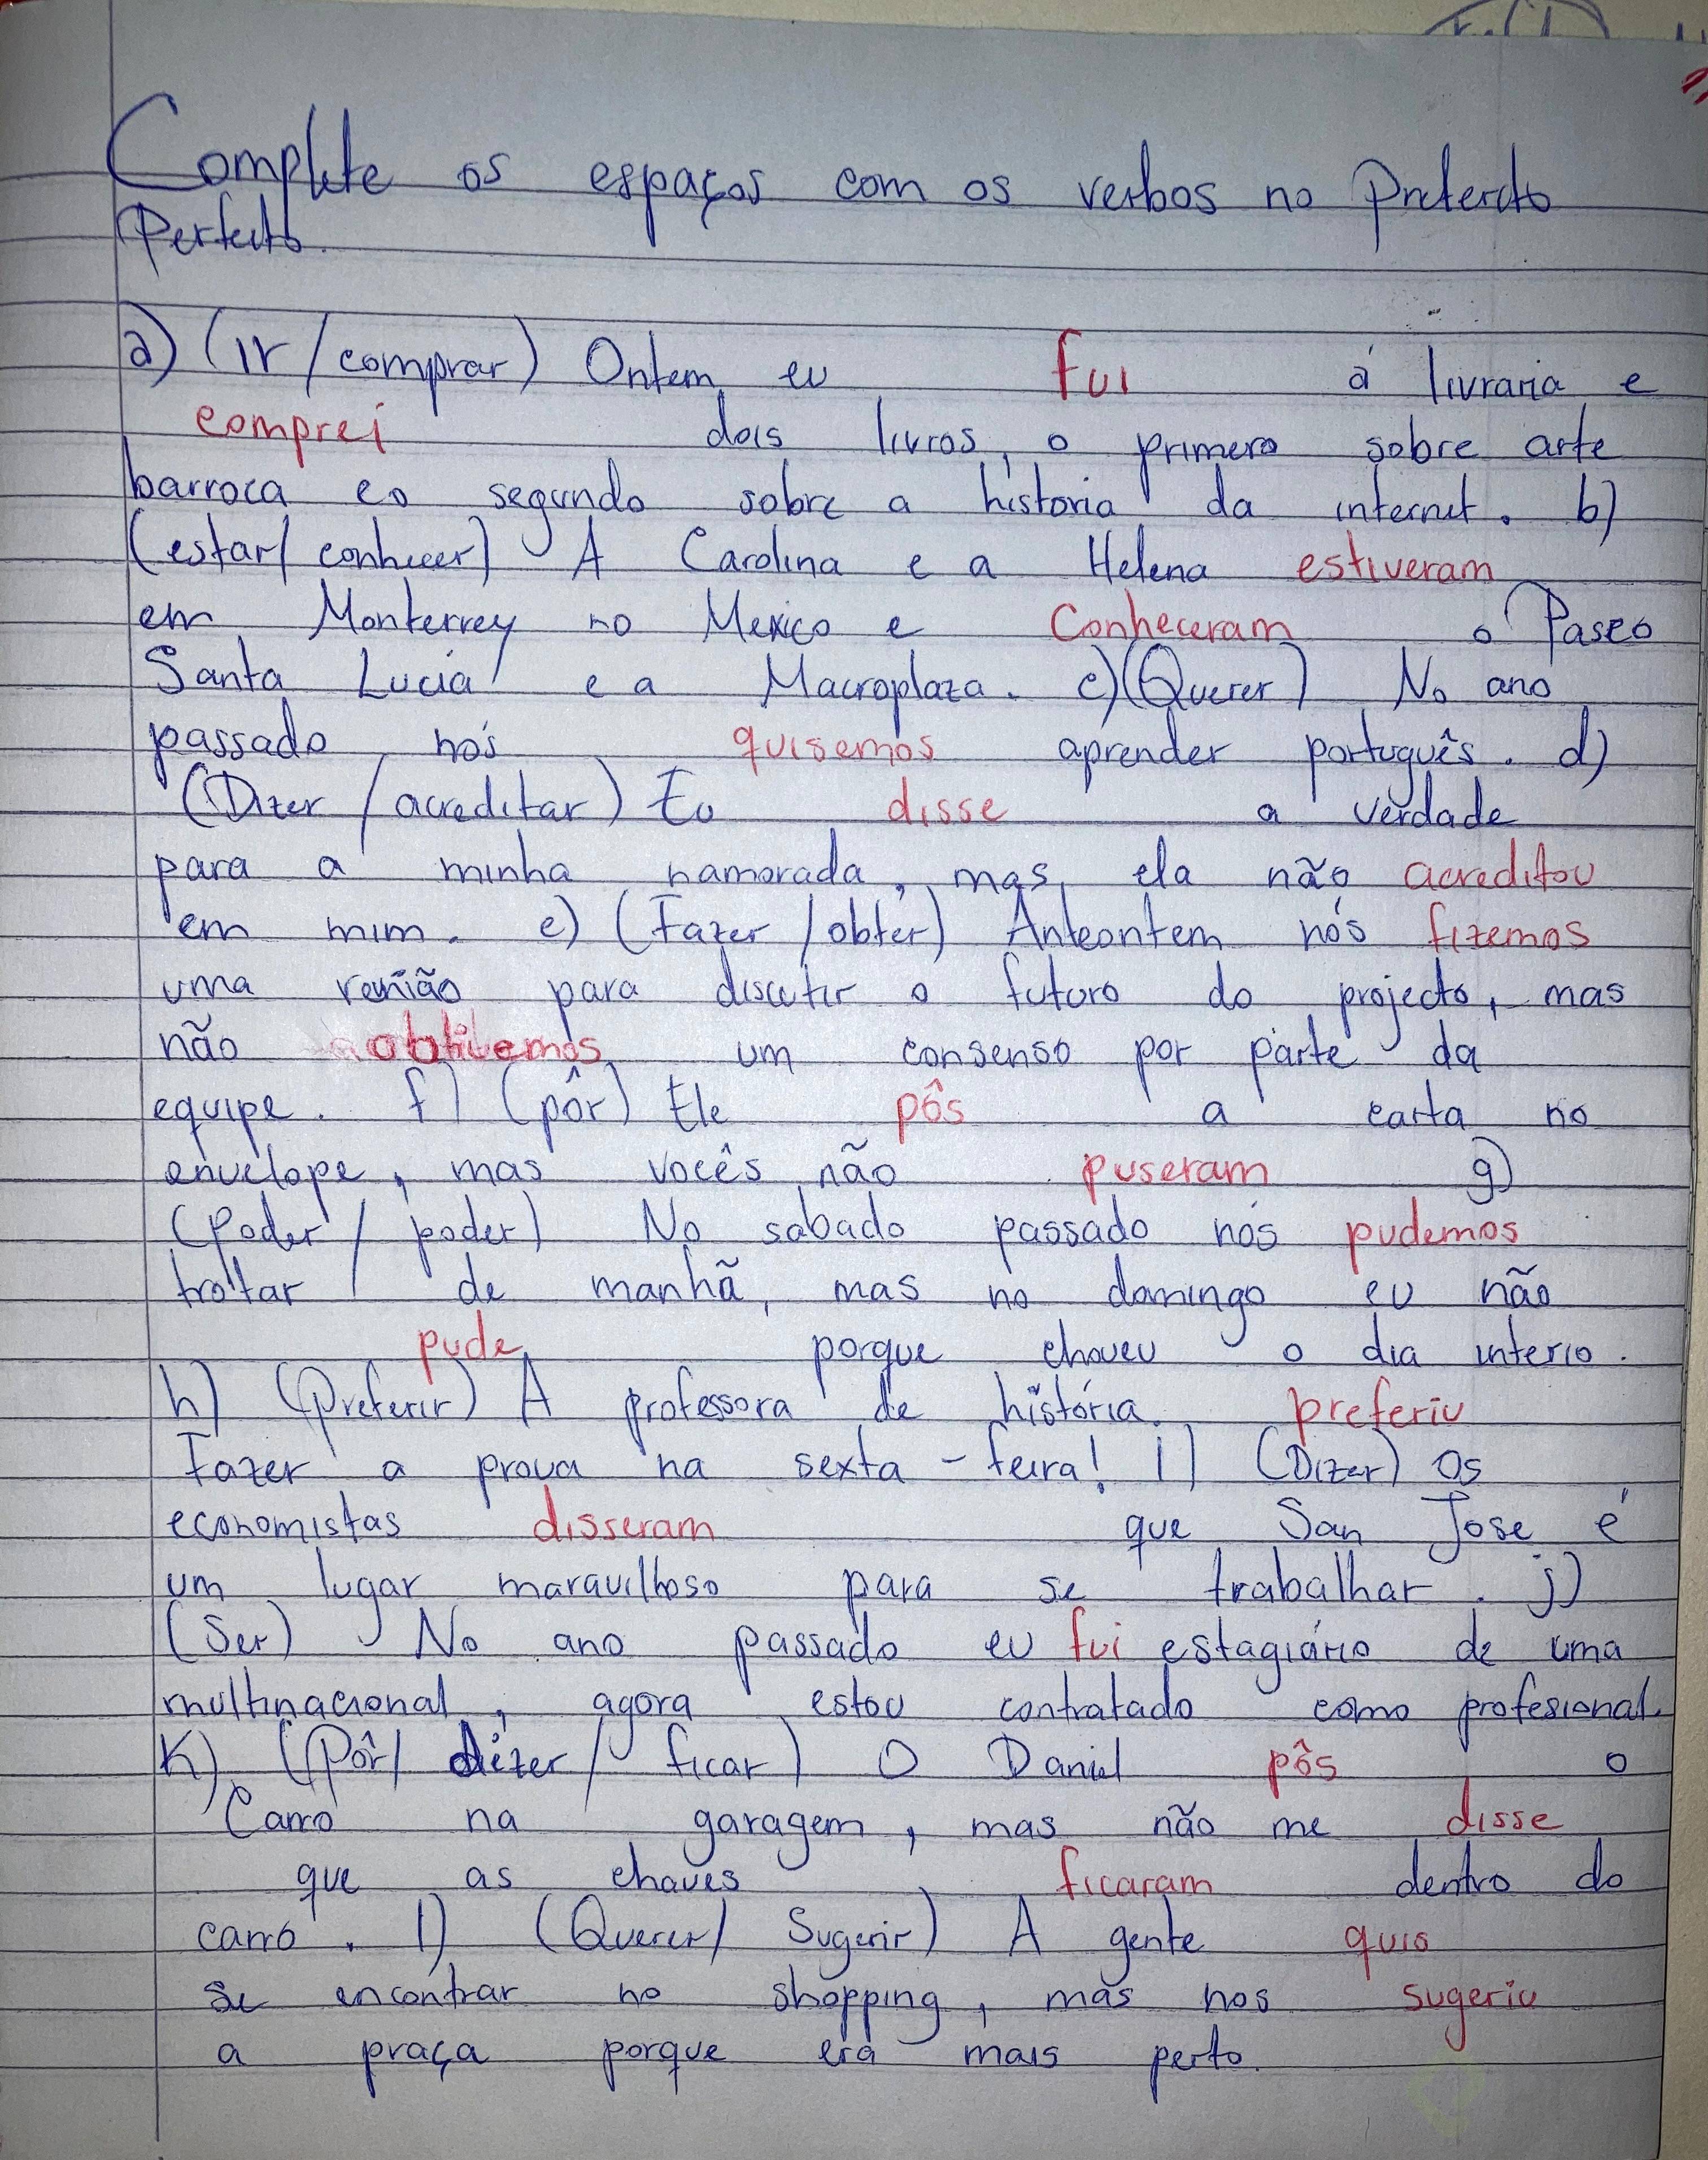 Complete os espaços com os verbos no Preterito
Perfeito.
a) (Ir/comprar) Ontem eu fui á livraria e
comprei dois livros, o primero sobre arte
barroca e o segundo sobre a história da internet. b)
(estar/ conhecer) A Carolina e a Helena estiveram
em Monterrey no Mexico e Conheceram o Paseo
Santa Lucia e a Macroplaza. c)(Querer) No ano
passado nós quisemos aprender português. d)
(Dizer /acreditar) Eu disse a verdade
para a minha namorada, mas, ela não acreditou
em mim. e) (Fazer /obter) Anteontem nós fizemos
uma renião para discutir o futuro do projecto, mas
não obtivemos um consenso por parte da
equipe. f) (pôr) Ele pôs a carta no
envelope, mas vocês não puseram g)
(Poder / poder) No sabado passado nós pudemos
trottar de manhã, mas no domingo eu não
pude porque choveu o dia interio.
h) (Preferir) A professora de história preferiu
Fazer a prova na sexta-feira! I) (Dizer) Os
economistas disseram que San Jose é
um lugar maravilhoso para se trabalhar. j)
(Ser) No ano passado eu fui estagiário de uma
multinacional, agora estou contratado como profesional.
K) (Pôr/ dizer/ ficar) O Daniel pôs o
Carro na garagem, mas não me disse
que as chaves ficaram dentro do
carro. l) (Querer/ Sugerir) A gente quis
se encontrar no shopping, mas nos sugeriu
a praça porque era mais perto.